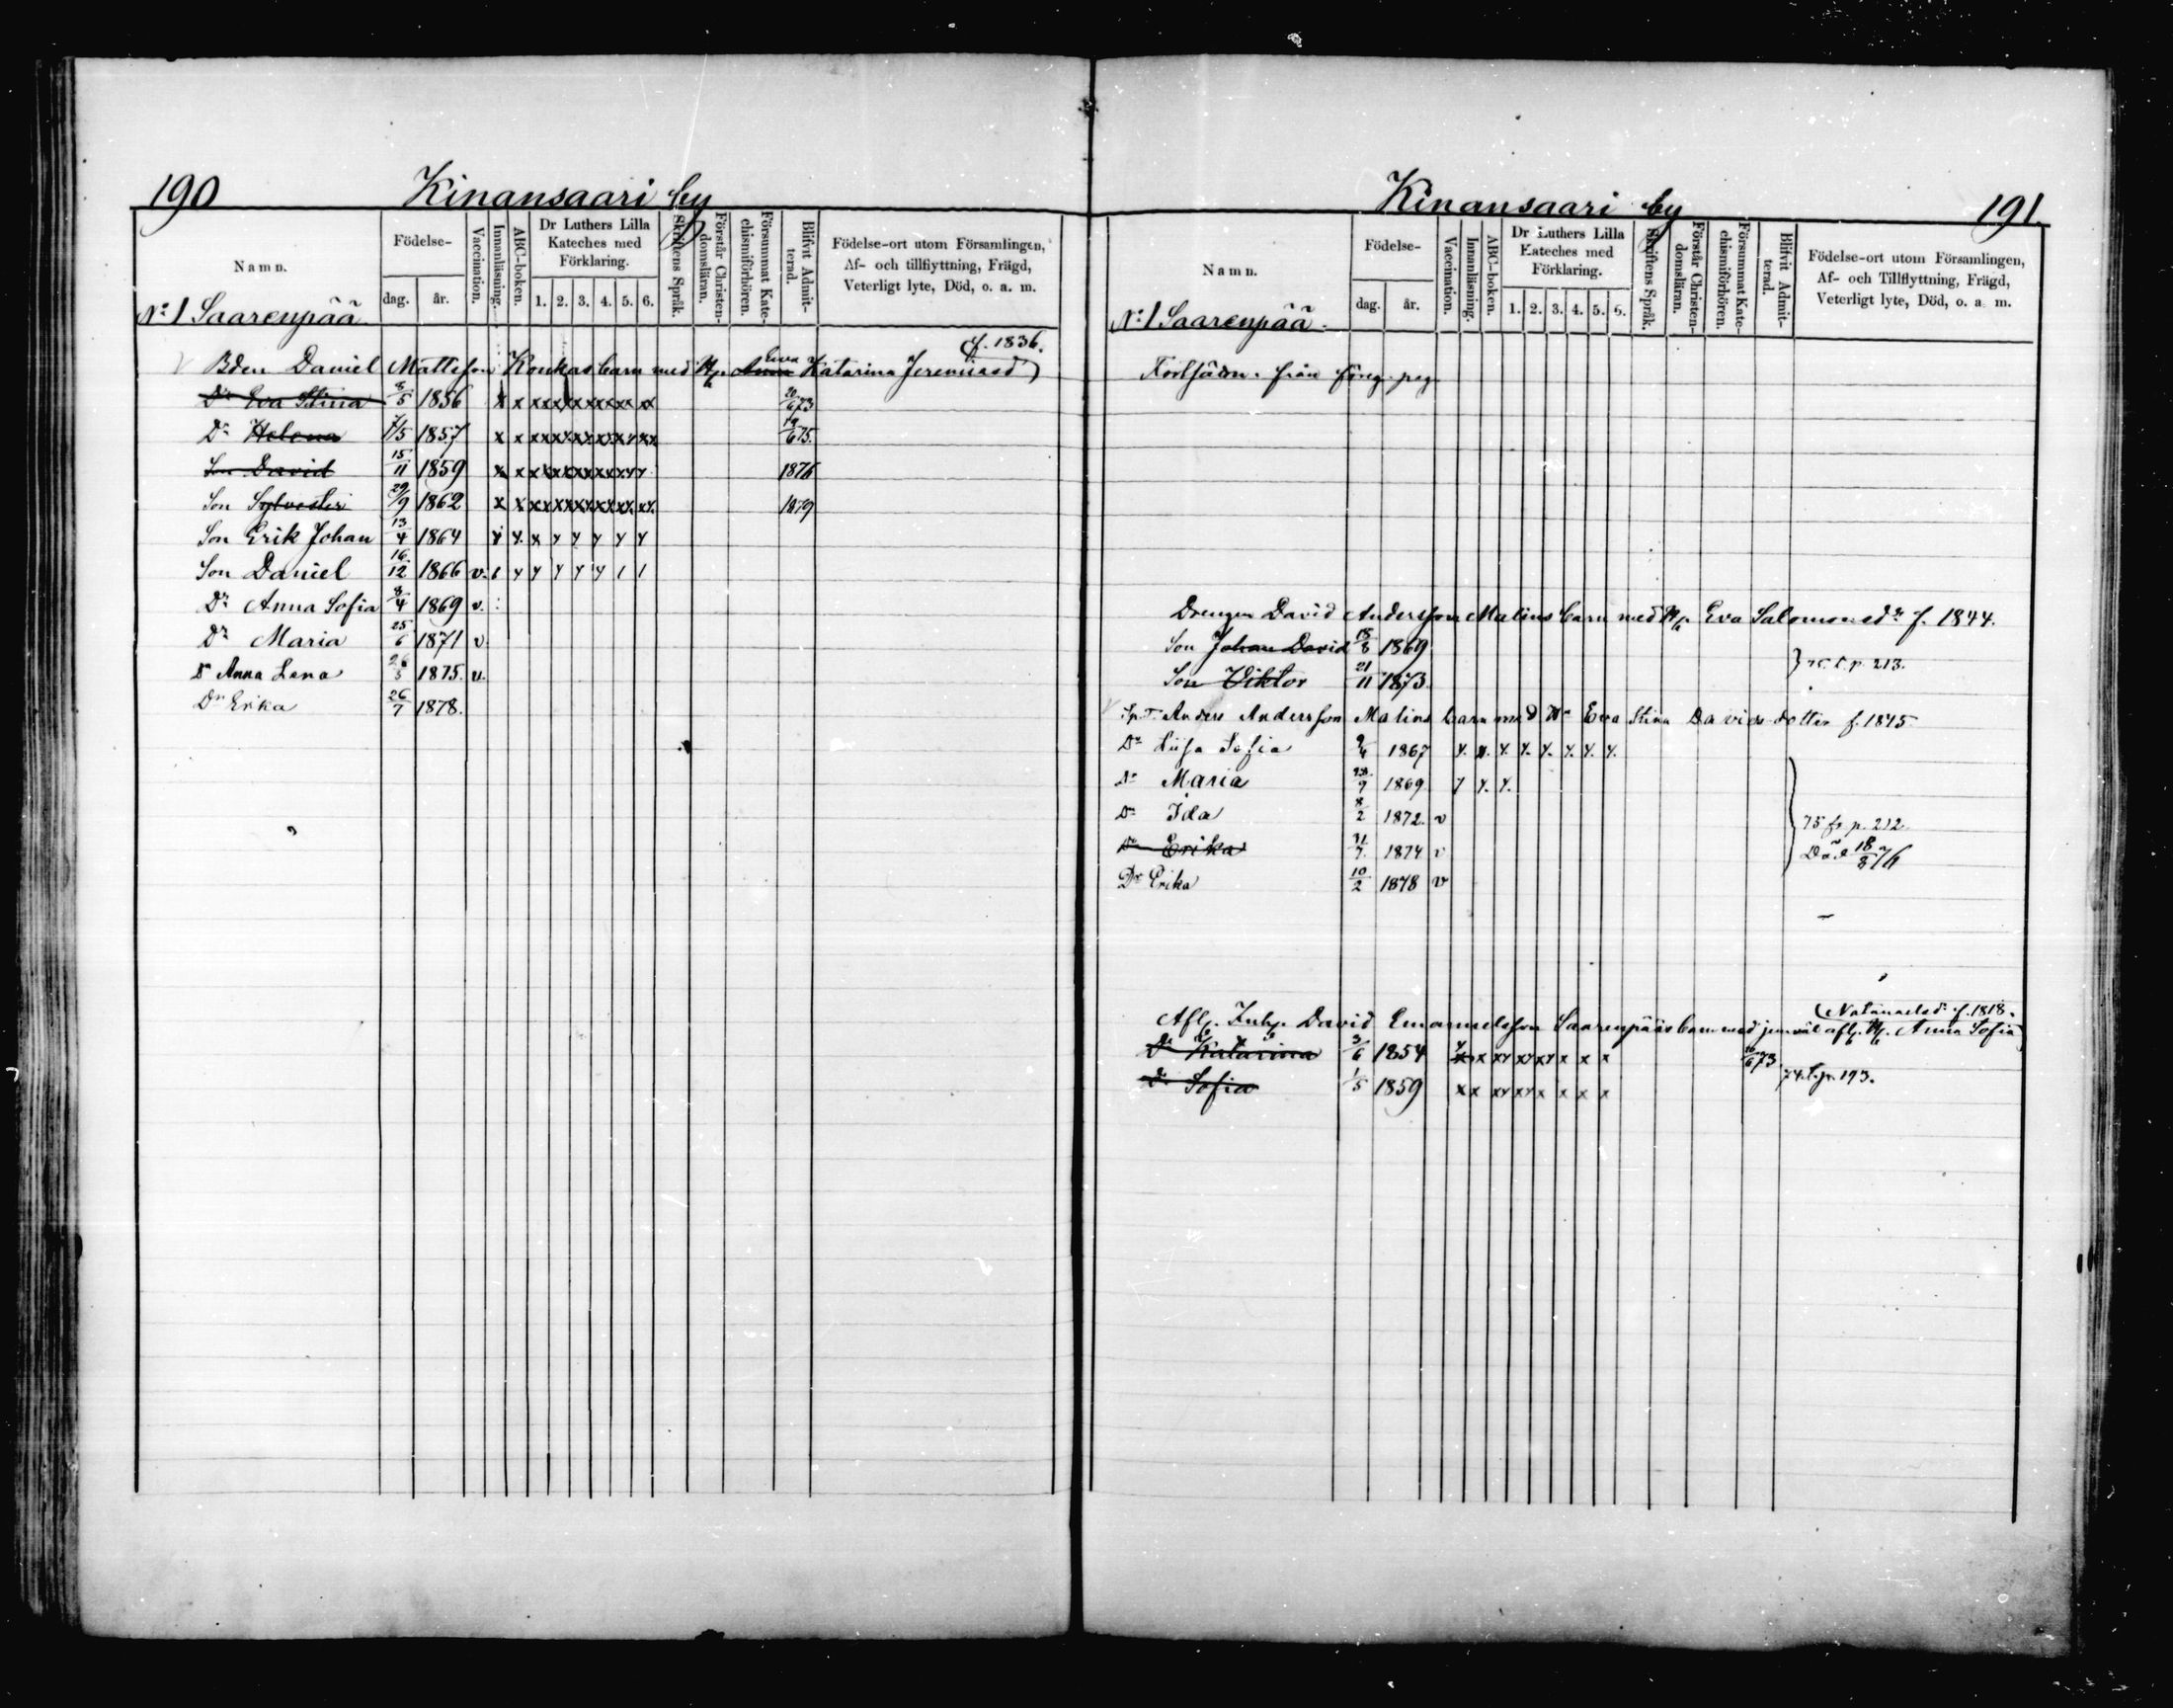 190 Kinansaari by
Namn.
Födelse-
dag. år.
Vaccination.
Innanläsning.
ABC-boken.
Dr Luthers Lilla
Kateches med
Förklaring.
1. 2. 3. 4. 5. 6.
Skriftens Språk.
Förstår Christen-
domsläran.
Försummat Kate-
chismiförhören.
Blifvit Admit-
terad.
Födelse-ort utom Församlingen,
Af- och tillflyttning, Frägd,
Veterligt lyte, Död, o. a. m.
No 1 Saarenpää
f. 1836.
Bden Daniel Mattsson Konkas barn med H. Anna Eva Katarina Jeremiasd
Dr Eva Stina 8/5 1856 x x xx xx xx xx xx xx 20/6 73
Dr Helena 7/5 1857 x x xx xx xx xx xx xx 19/6 75.
Son David 15/11 1859 x x xx xx xx xx xx 1876
Son Sylvester 29/9 1862 x x xx xx xx xx xx xx 1879
Son Erik Johan 13/4 1864
Son Daniel 16/12 1866 v.
Dr Anna Sofia 8/4 1869 v.
Dr Maria 25/6 1871 v.
Dr Anna Lena 1875. v.
Dr Erika 26/7 1878.
Kinansaari by 191.
Namn.
Födelse-
dag. år.
Vaccination.
Innanläsning.
ABC-boken.
Dr Luthers Lilla
Kateches med
Förklaring.
1. 2. 3. 4. 5. 6.
Skriftens Språk.
Förstår Christen-
domsläran.
Försummat Kate-
chismiförhören.
Blifvit Admit-
terad.
Födelse-ort utom Församlingen,
Af- och Tillflyttning, Frägd,
Veterligt lyte, Död, o. a. m.
No 1 Saarenpää.
från föreg. pag.
Drengen David Andersson Malins barn med H. Eva Salomonsdr f. 1844.
Son Johan David 18/8 1869
75. t. p. 213.
Son Viktor 21/11 1873
Anders Andersson Malins barn med Hu Eva Stina Davidsdotter f. 1845
Dr Liisa Sofia 9/4 1867
Dr Maria 1869
Dr Ida 8/2 1872. v
75 fr p. 212.
Dr Erika 1874 v Död 18/8 76
Dr Erika 10/2 1878 v
Natanaelsdr f. 1818.
Afl. Inh. David Emanuelsson Saarenpääs barn med jemväl afl. H. Anna Sofia
Dr Katarina 3/6 1854 x x xx xx xx x x x 73
74. t. p. 193.
Dr Sofia 1/5 1859 x x xx xx x x x x